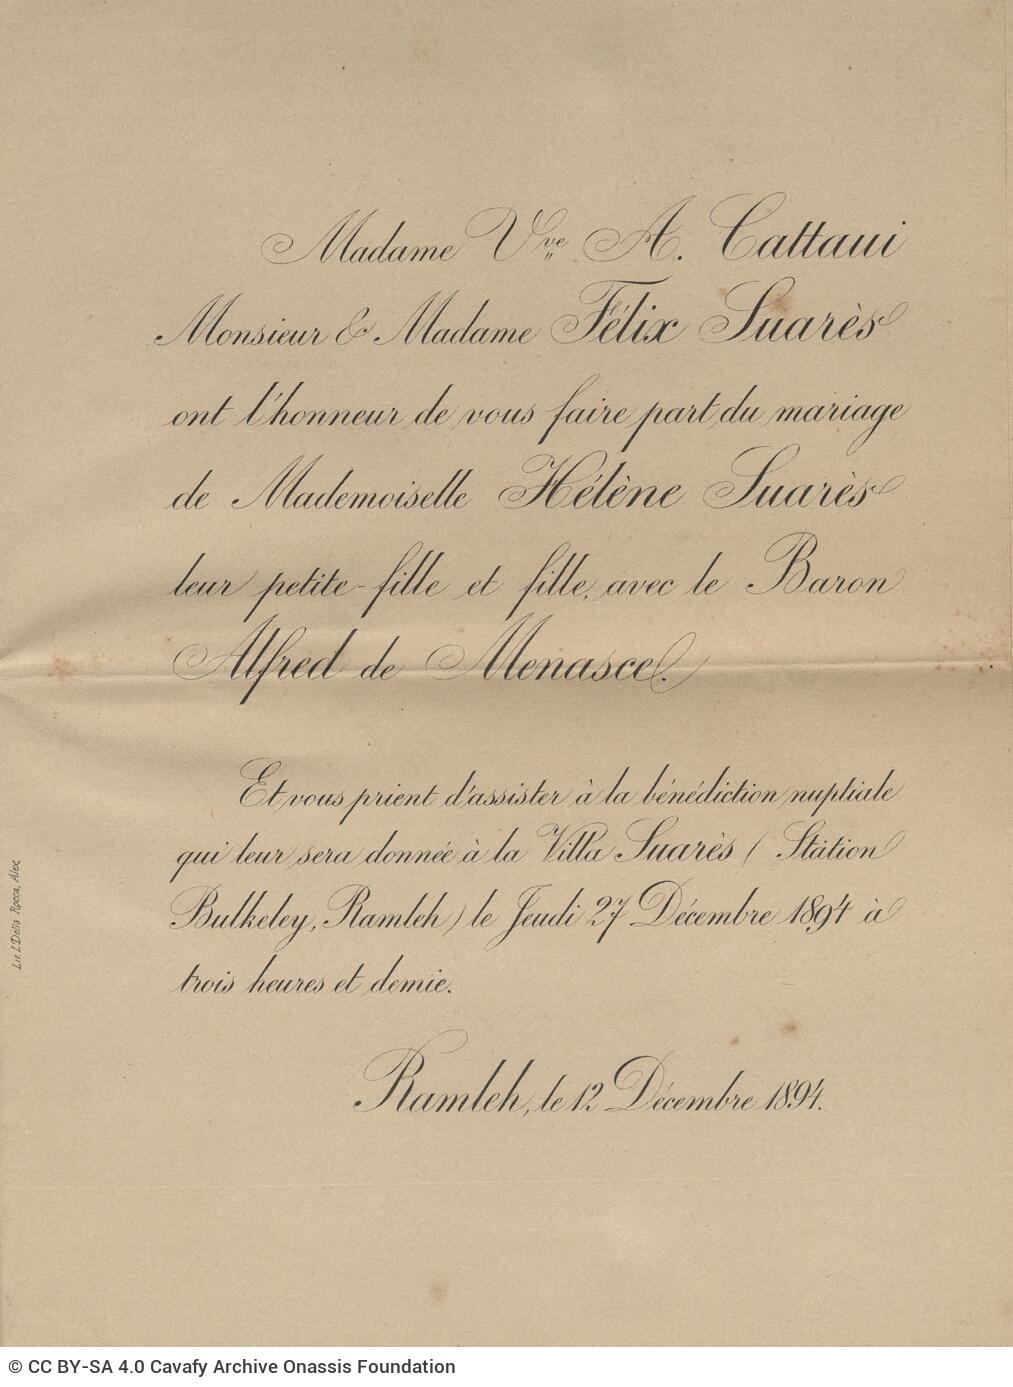 Madame Vve A. Cattaui
Monsieur & Madame Félix Suarès
ont l'honneur de vous faire part du mariage
de Mademoiselle Hélène Suarès
leur petite-fille et fille, avec le Baron
Alfred de Menasce.
Et vous prient d'assister à la bénédiction nuptiale
qui leur sera donnée à la Villa Suarès (Station
Bulkeley, Ramleh) le Jeudi 27 Décembre 1894 à
trois heures et demie.
Ramleh, le 12 Décembre 1894.
Lit. I. Della Rocca, Alex
© CC BY-SA 4.0 Cavafy Archive Onassis Foundation